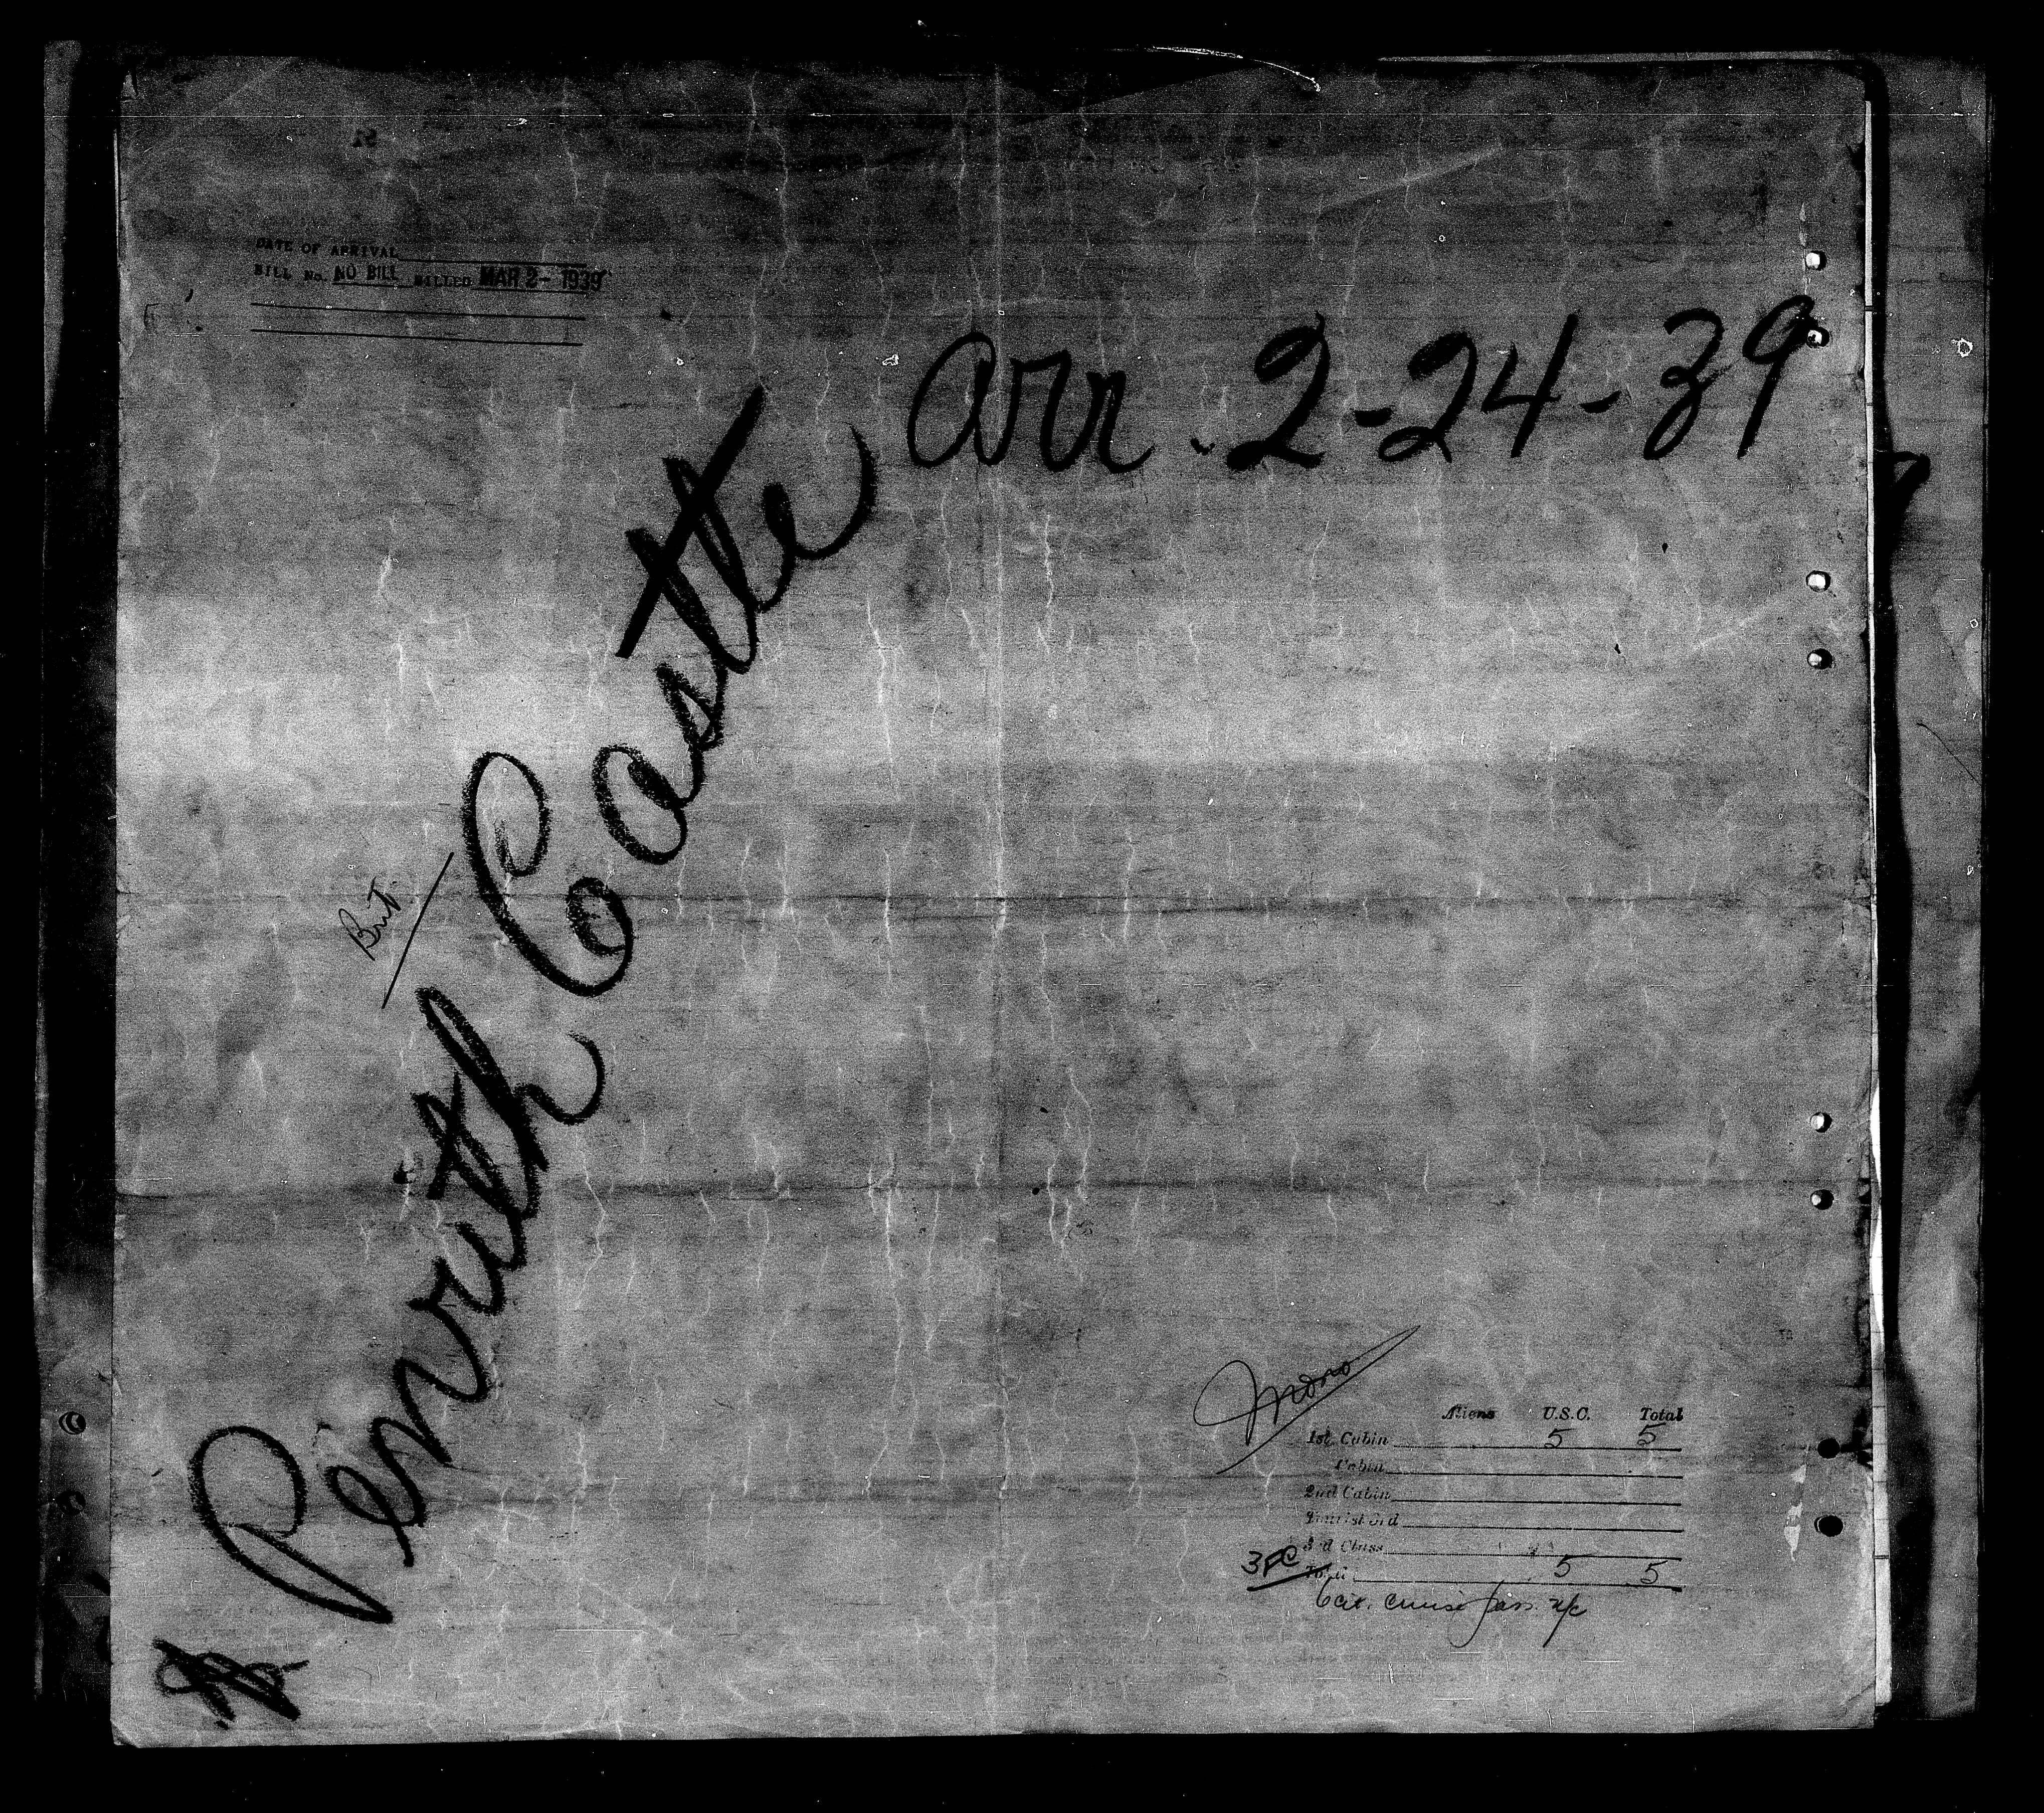 DATE OF ARRIVAL
BILL No. NO BILL BILLED MAR 2- 1939
arr. 2-24-39
Penrith Castle
Brit.
Aliens U.S.C. Total
1st Cabin 5 5
Cabin
2nd Cabin
Tourist 3rd
3rd Class
Total 5 5
cruise pass.